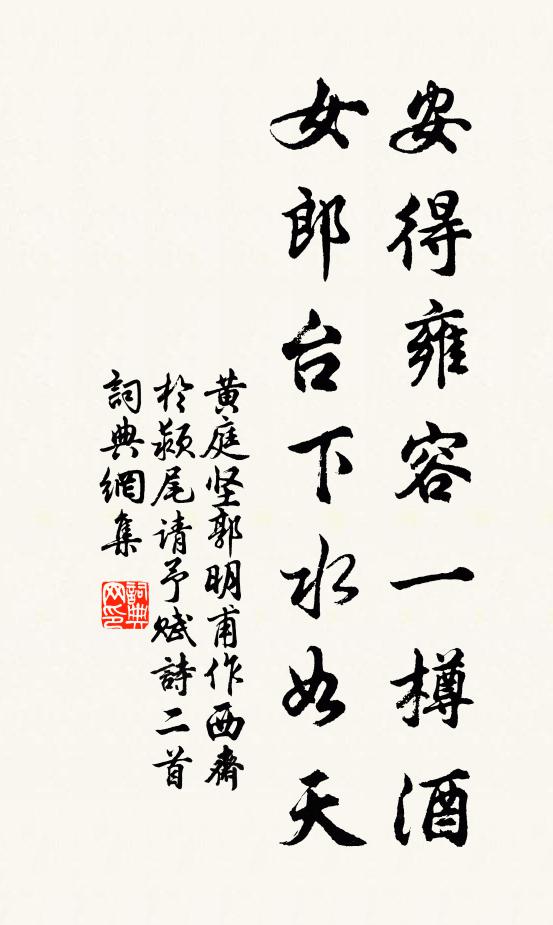 安得雍容一樽酒
女郎台下水如天
黄庭坚郭明甫作西齋
於潁尾请予赋詩二首
詞典網集
詞典网印